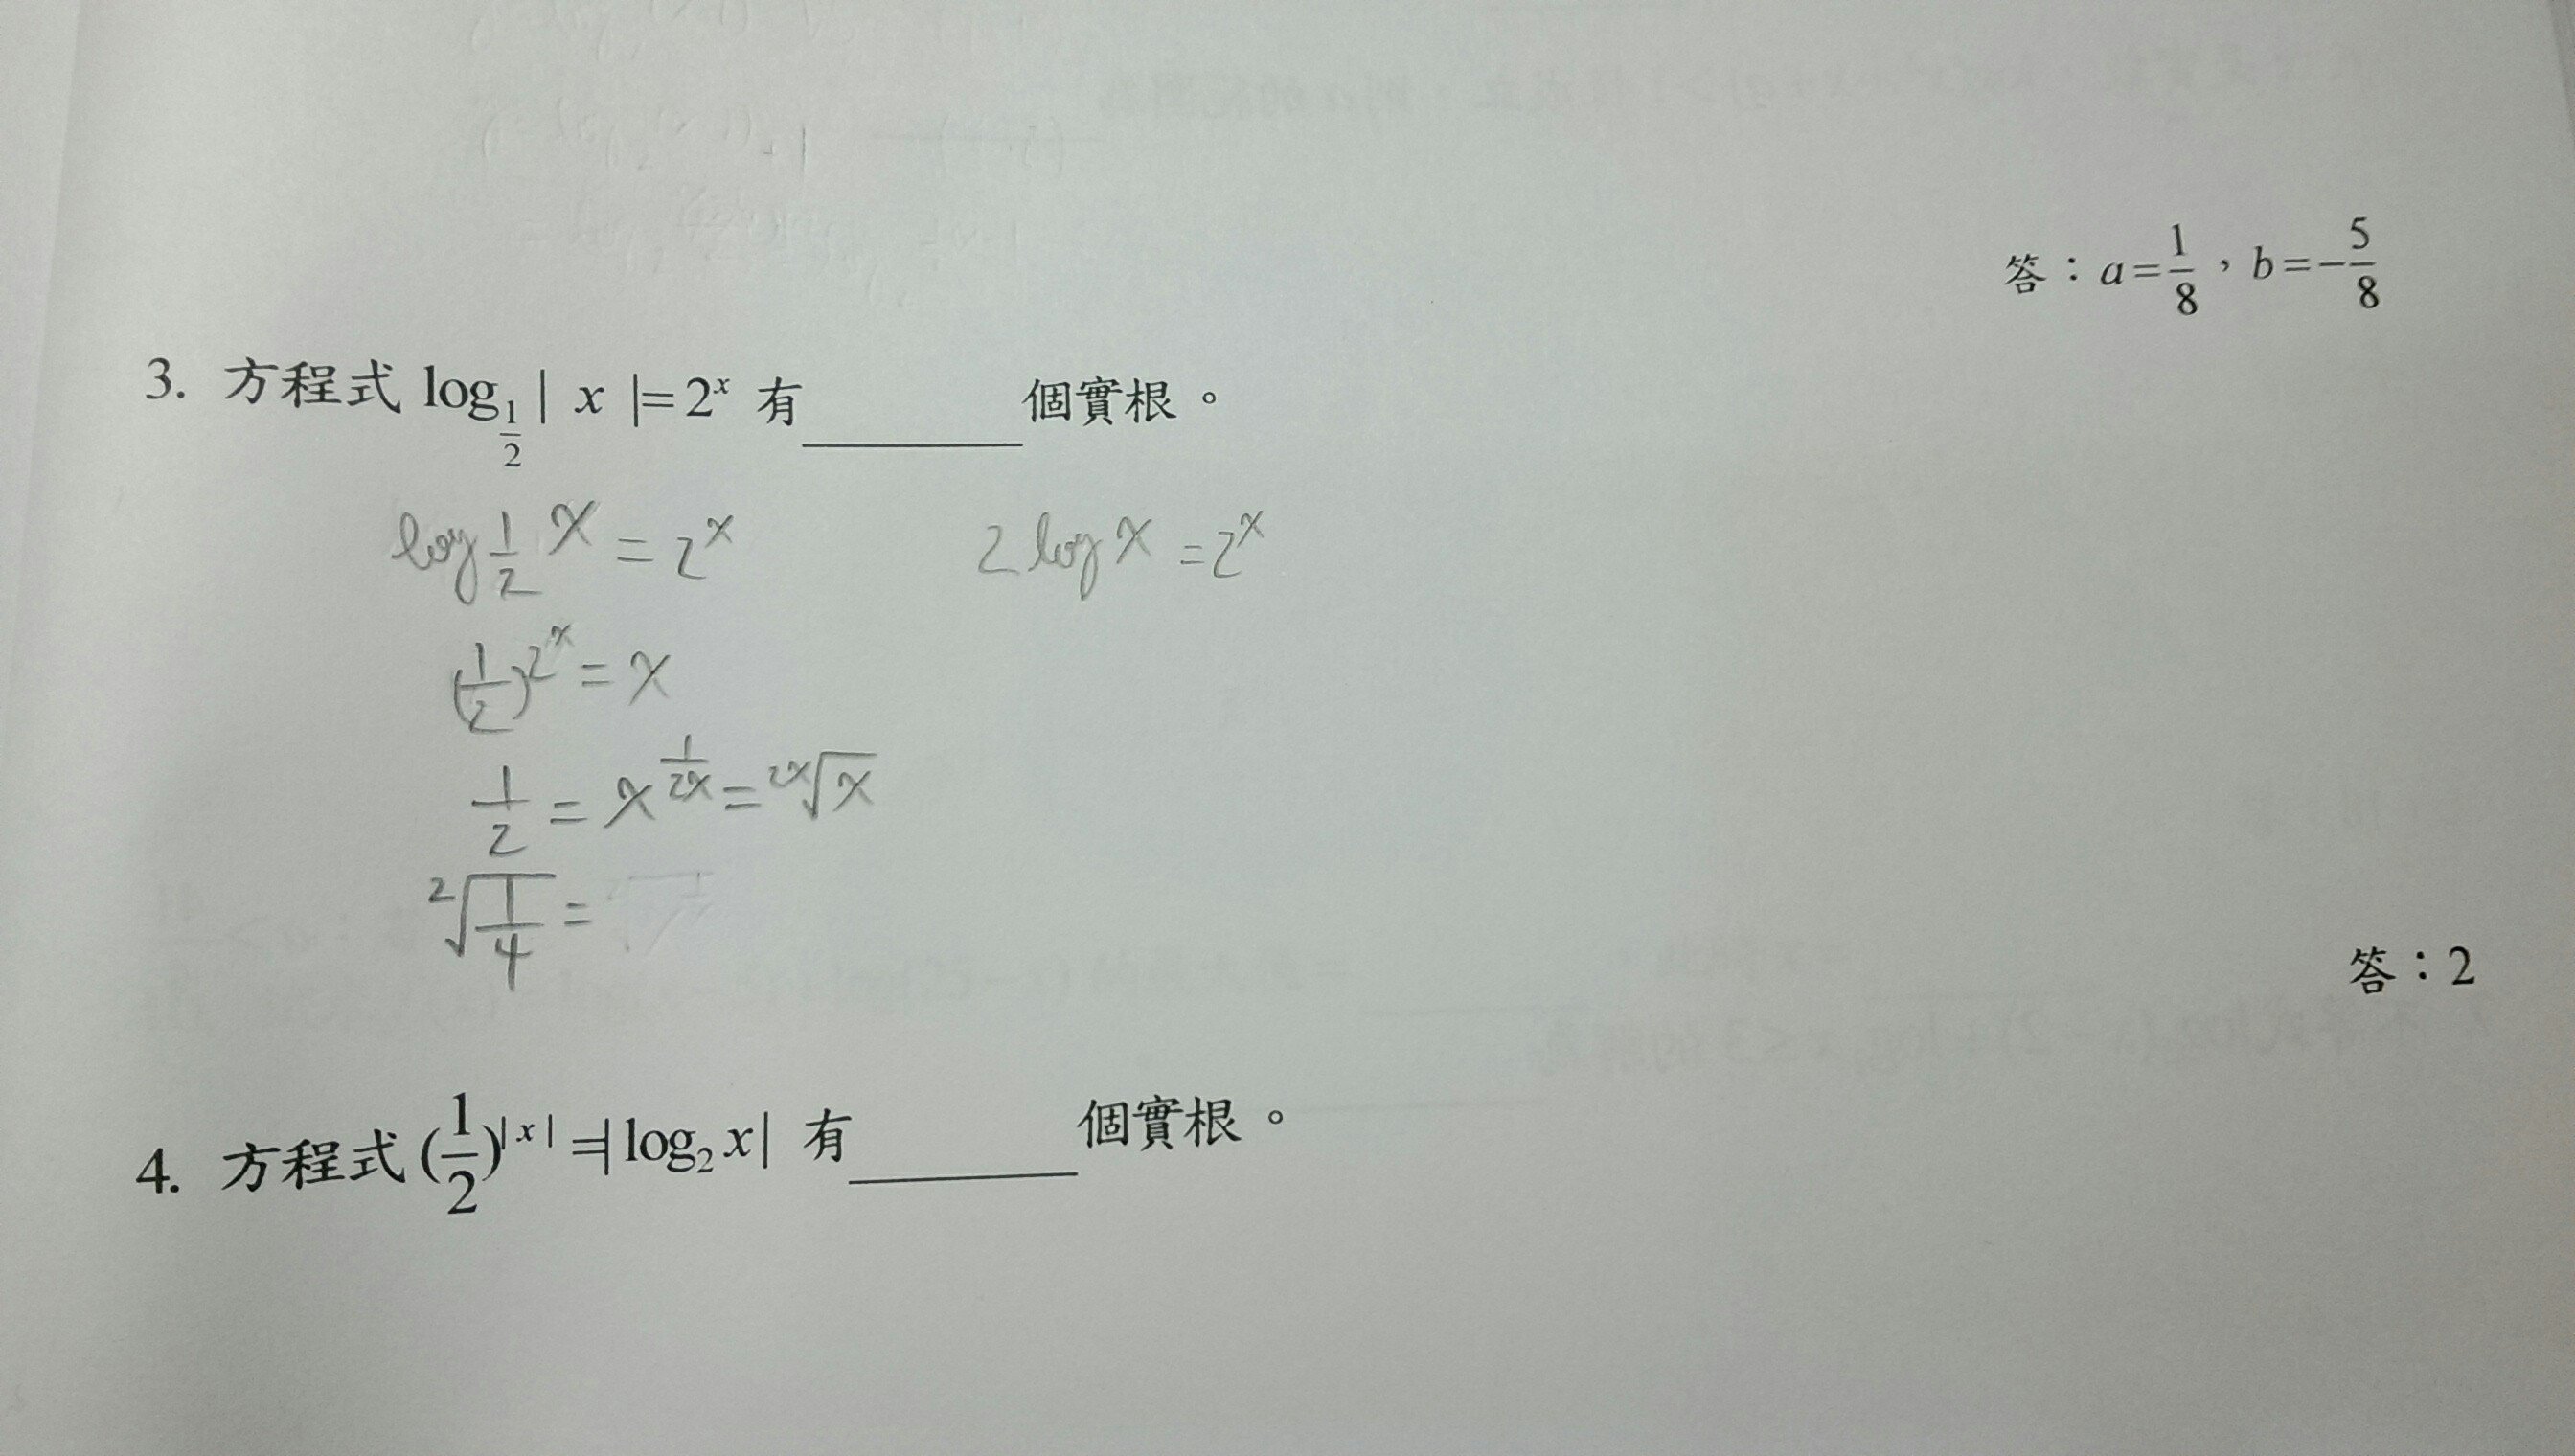 答：a=1/8，b=-5/8
3. 方程式 log_{1/2}| x |=2^x 有______個實根。
log_{1/2} x = 2^x 2 log x = 2^x
(1/2)^{2^x} = x
1/2 = x^{1/2x} = ^{2x}√x
^2√(1/4) =
答：2
4. 方程式 (1/2)^{|x|} =| log_2 x | 有______個實根。